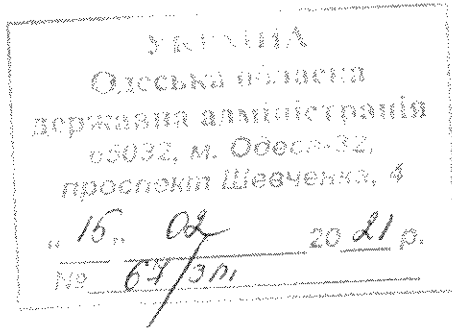 УКРАЇНА
Одеська обласна
державна адміністрація
65032, м. Одеса-32,
проспект Шевченка, 4
„ 15 „ 02 20 21 р.
№ 67/зп